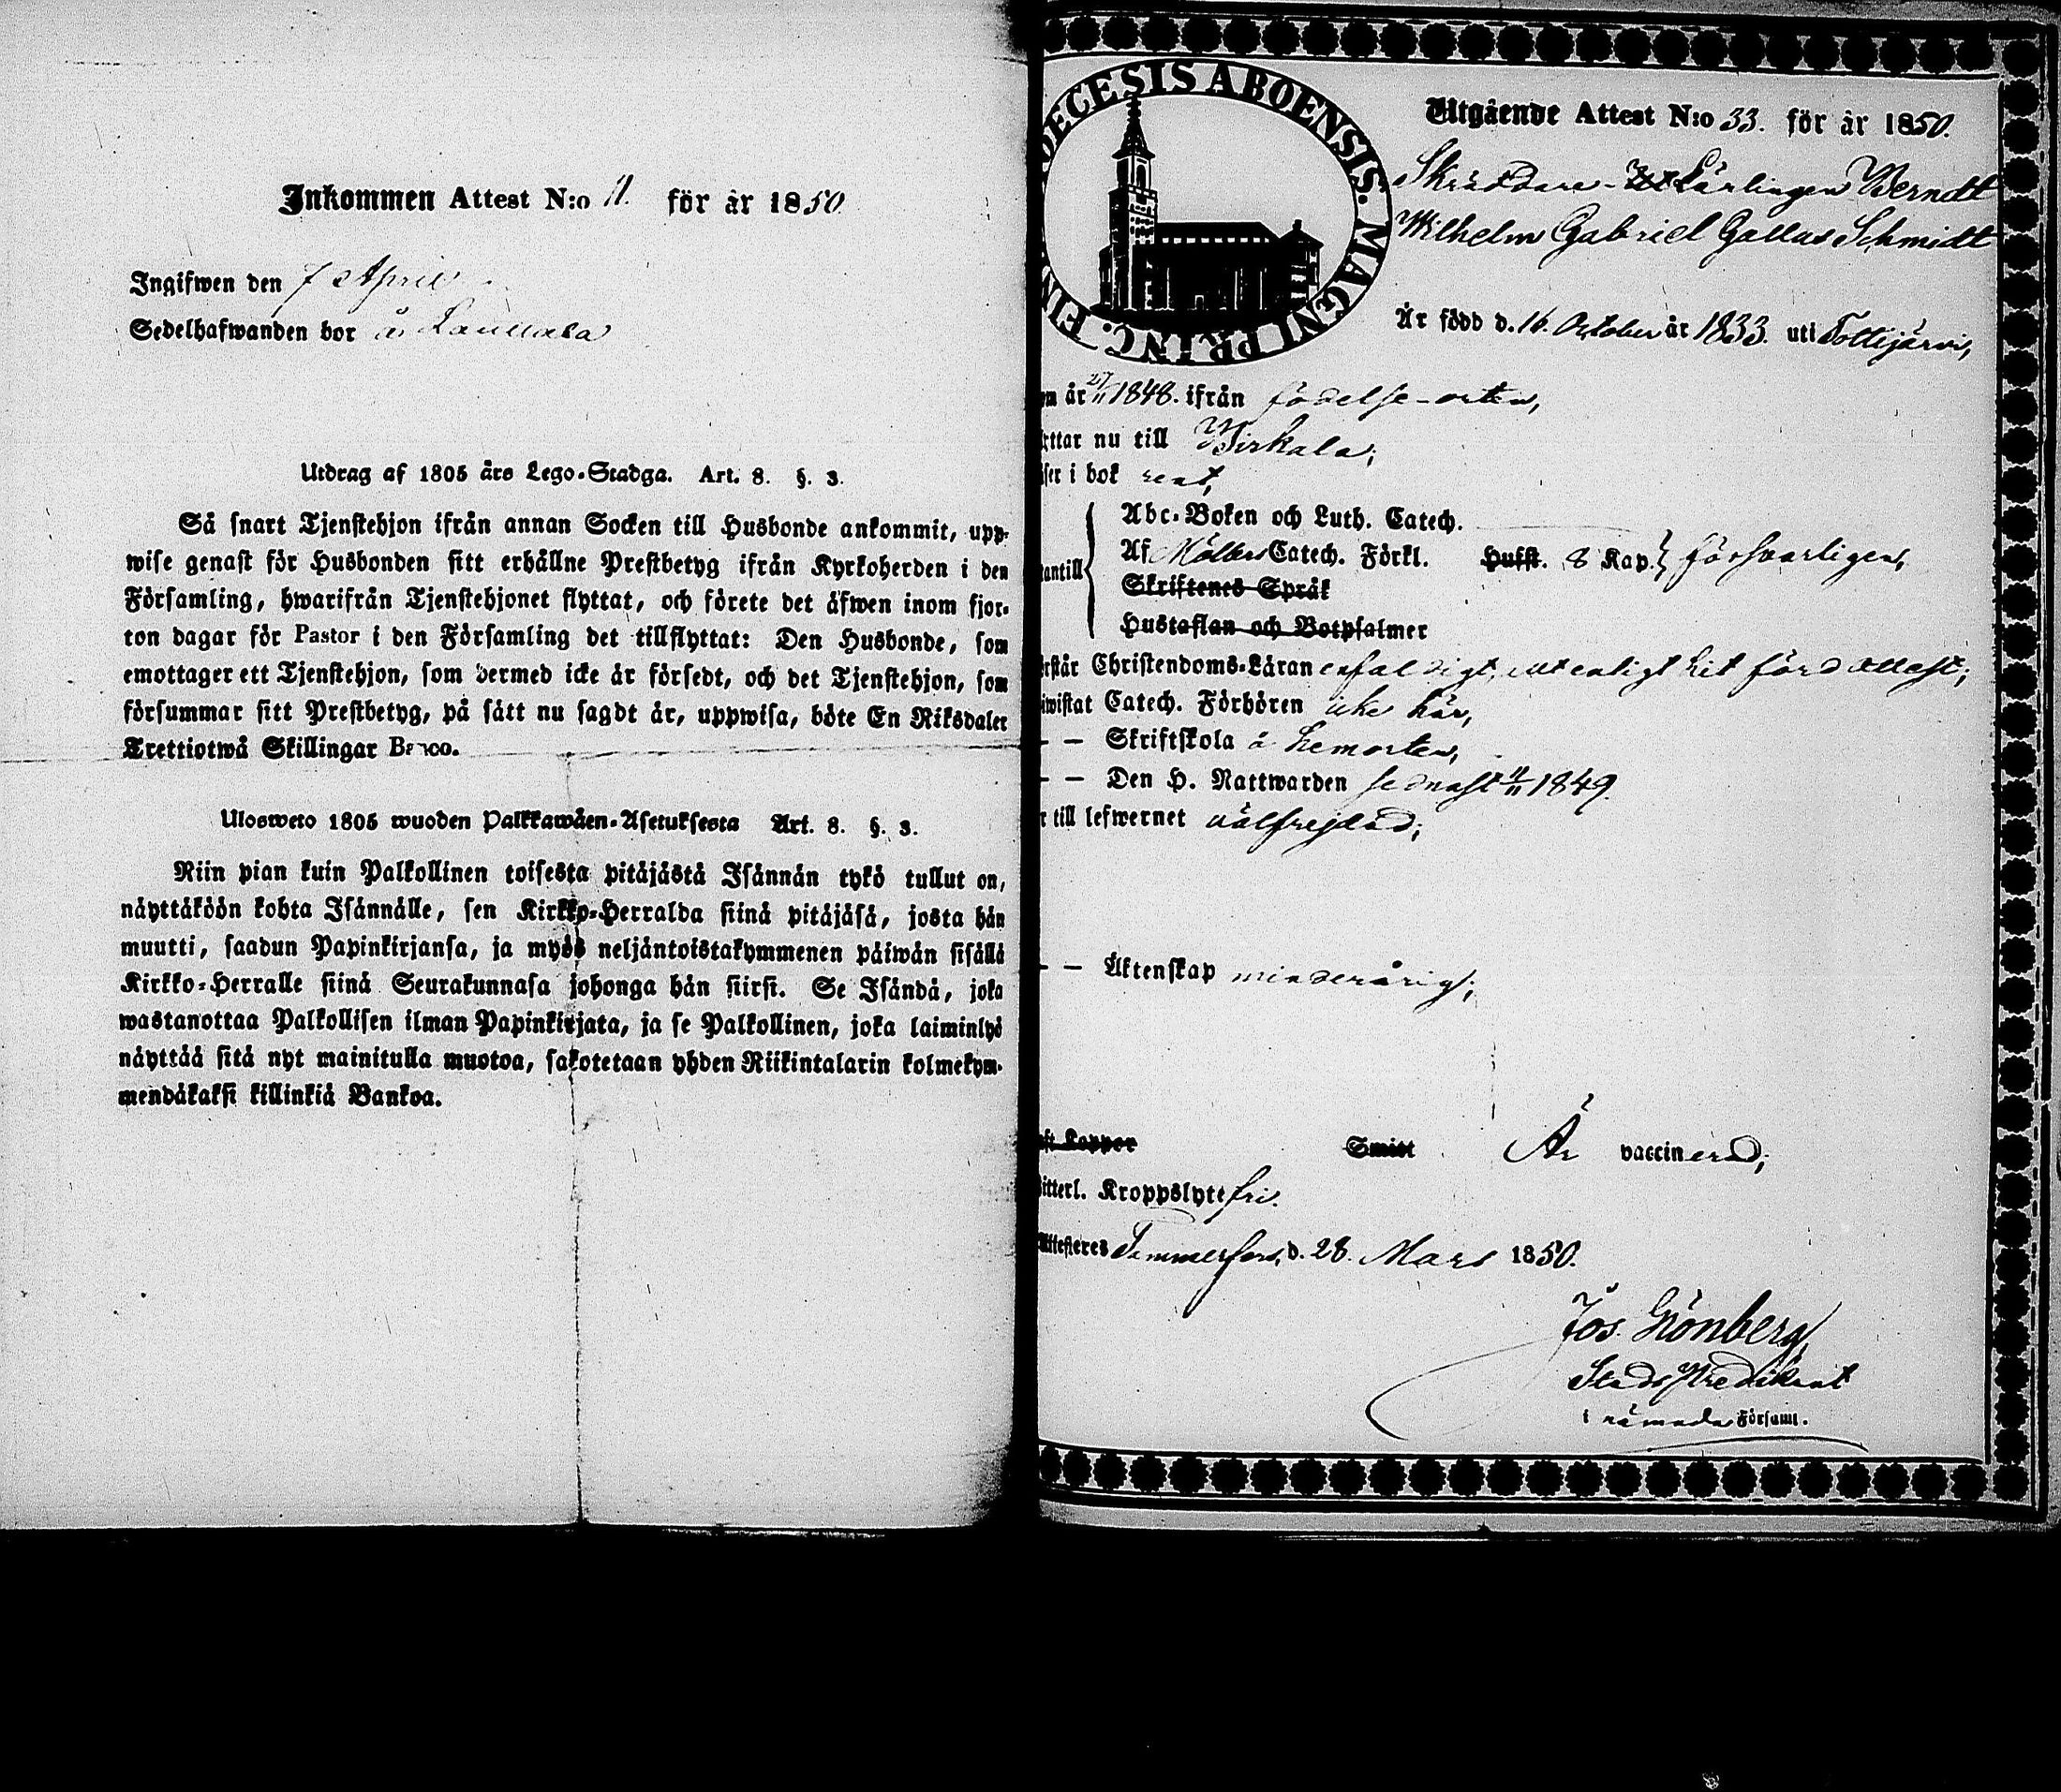 Inkommen Attest N:o 11. för år 1850
Ingifwen den 7 April
Sedelhafwanden bor å
Utdrag af 1805 års Lego-Stadga. Art. 8. §. 3.
Så snart Tjenstehjon ifrån annan Socken till Husbonde ankommit, upp-
wise genast för Husbonden sitt erhållne Prestbetyg ifrån Kyrkoherden i den
Församling, hwarifrån Tjenstehjonet flyttat, och förete det äfwen inom fjor-
ton dagar för Pastor i den Församling det tillflyttat: Den Husbonde, som
emottager ett Tjenstehjon, som dermed icke är försedt, och det Tjenstehjon, som
försummar sitt Prestbetyg, på sätt nu sagdt är, uppwisa, böte En Riksdaler
Trettiotwå Skillingar Banco.
Ulosweto 1805 wuoden Palkkawäen-Asetuksesta Art. 8. §. 3.
Niin pian kuin Palkollinen toisesta pitäjästä Isännän tykö tullut on,
näyttäköön kohta Isännälle, sen Kirkko-Herralda siinä pitäjäsä, josta hän
muutti, saadun Papinkirjansa, ja myös neljäntoistakymmenen päiwän sisällä
Kirkko-Herralle siinä Seurakunnasa johonga hän siirsi. Se Isändä, joka
wastanottaa Palkollisen ilman Papinkirjata, ja se Palkollinen, joka laiminlyö
näyttää sitä nyt mainitulla muotoa, sakotetaan yhden Riikintalarin kolmekym-
mendäkaksi killinkiä Bankoa.
DECESIS ABOENSIS. MAGNI PRINC. FIN
Utgående Attest N:o 33. för år 1850.
Skräddare-Lärlingen Werndt
Wilhelm Gabriel Gallus Schmidt
Är född d. 16. October år 1833. uti Tottijärvi,
om år 27/11 1848. ifrån födelse-orten,
yttar nu till Birkala;
äser i bok rent,
Abc-Boken och Luth. Catech.
antill Af Möllers Catech. Förkl. Hufst. 8 Kap. försvarligen,
Skriftenes Språk
Hustaflan och Botpsalmer
rstår Christendoms-Läran enfaldigt, allt enligt hit förd attest;
iwistat Catech. Förhören icke här,
— — Skriftskola å hemorten,
— — Den H. Nattwarden sednast 11/11 1849.
r till lefwernet välfrejdad;
— — Äktenskap minderårig;
ft Koppor Smitt Är vaccinerad;
itterl. Kroppslyte fri.
Attesteres Tammerfors, d. 28. Mars 1850.
Jos. Grönberg
Stads Predikant
i nämnda Församl.